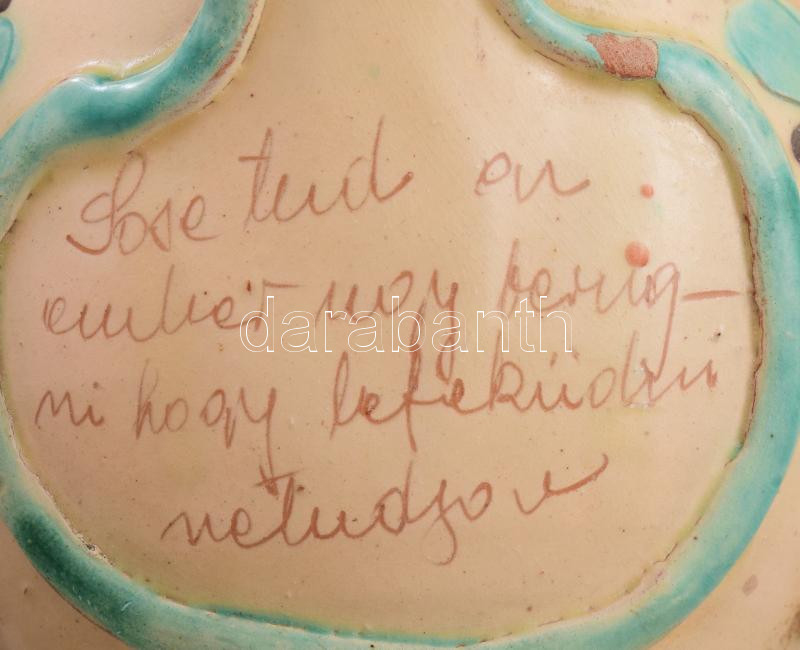 Sose tud en
ember ugy berug-
ni hogy lefeküdni
netudjon
darabanth